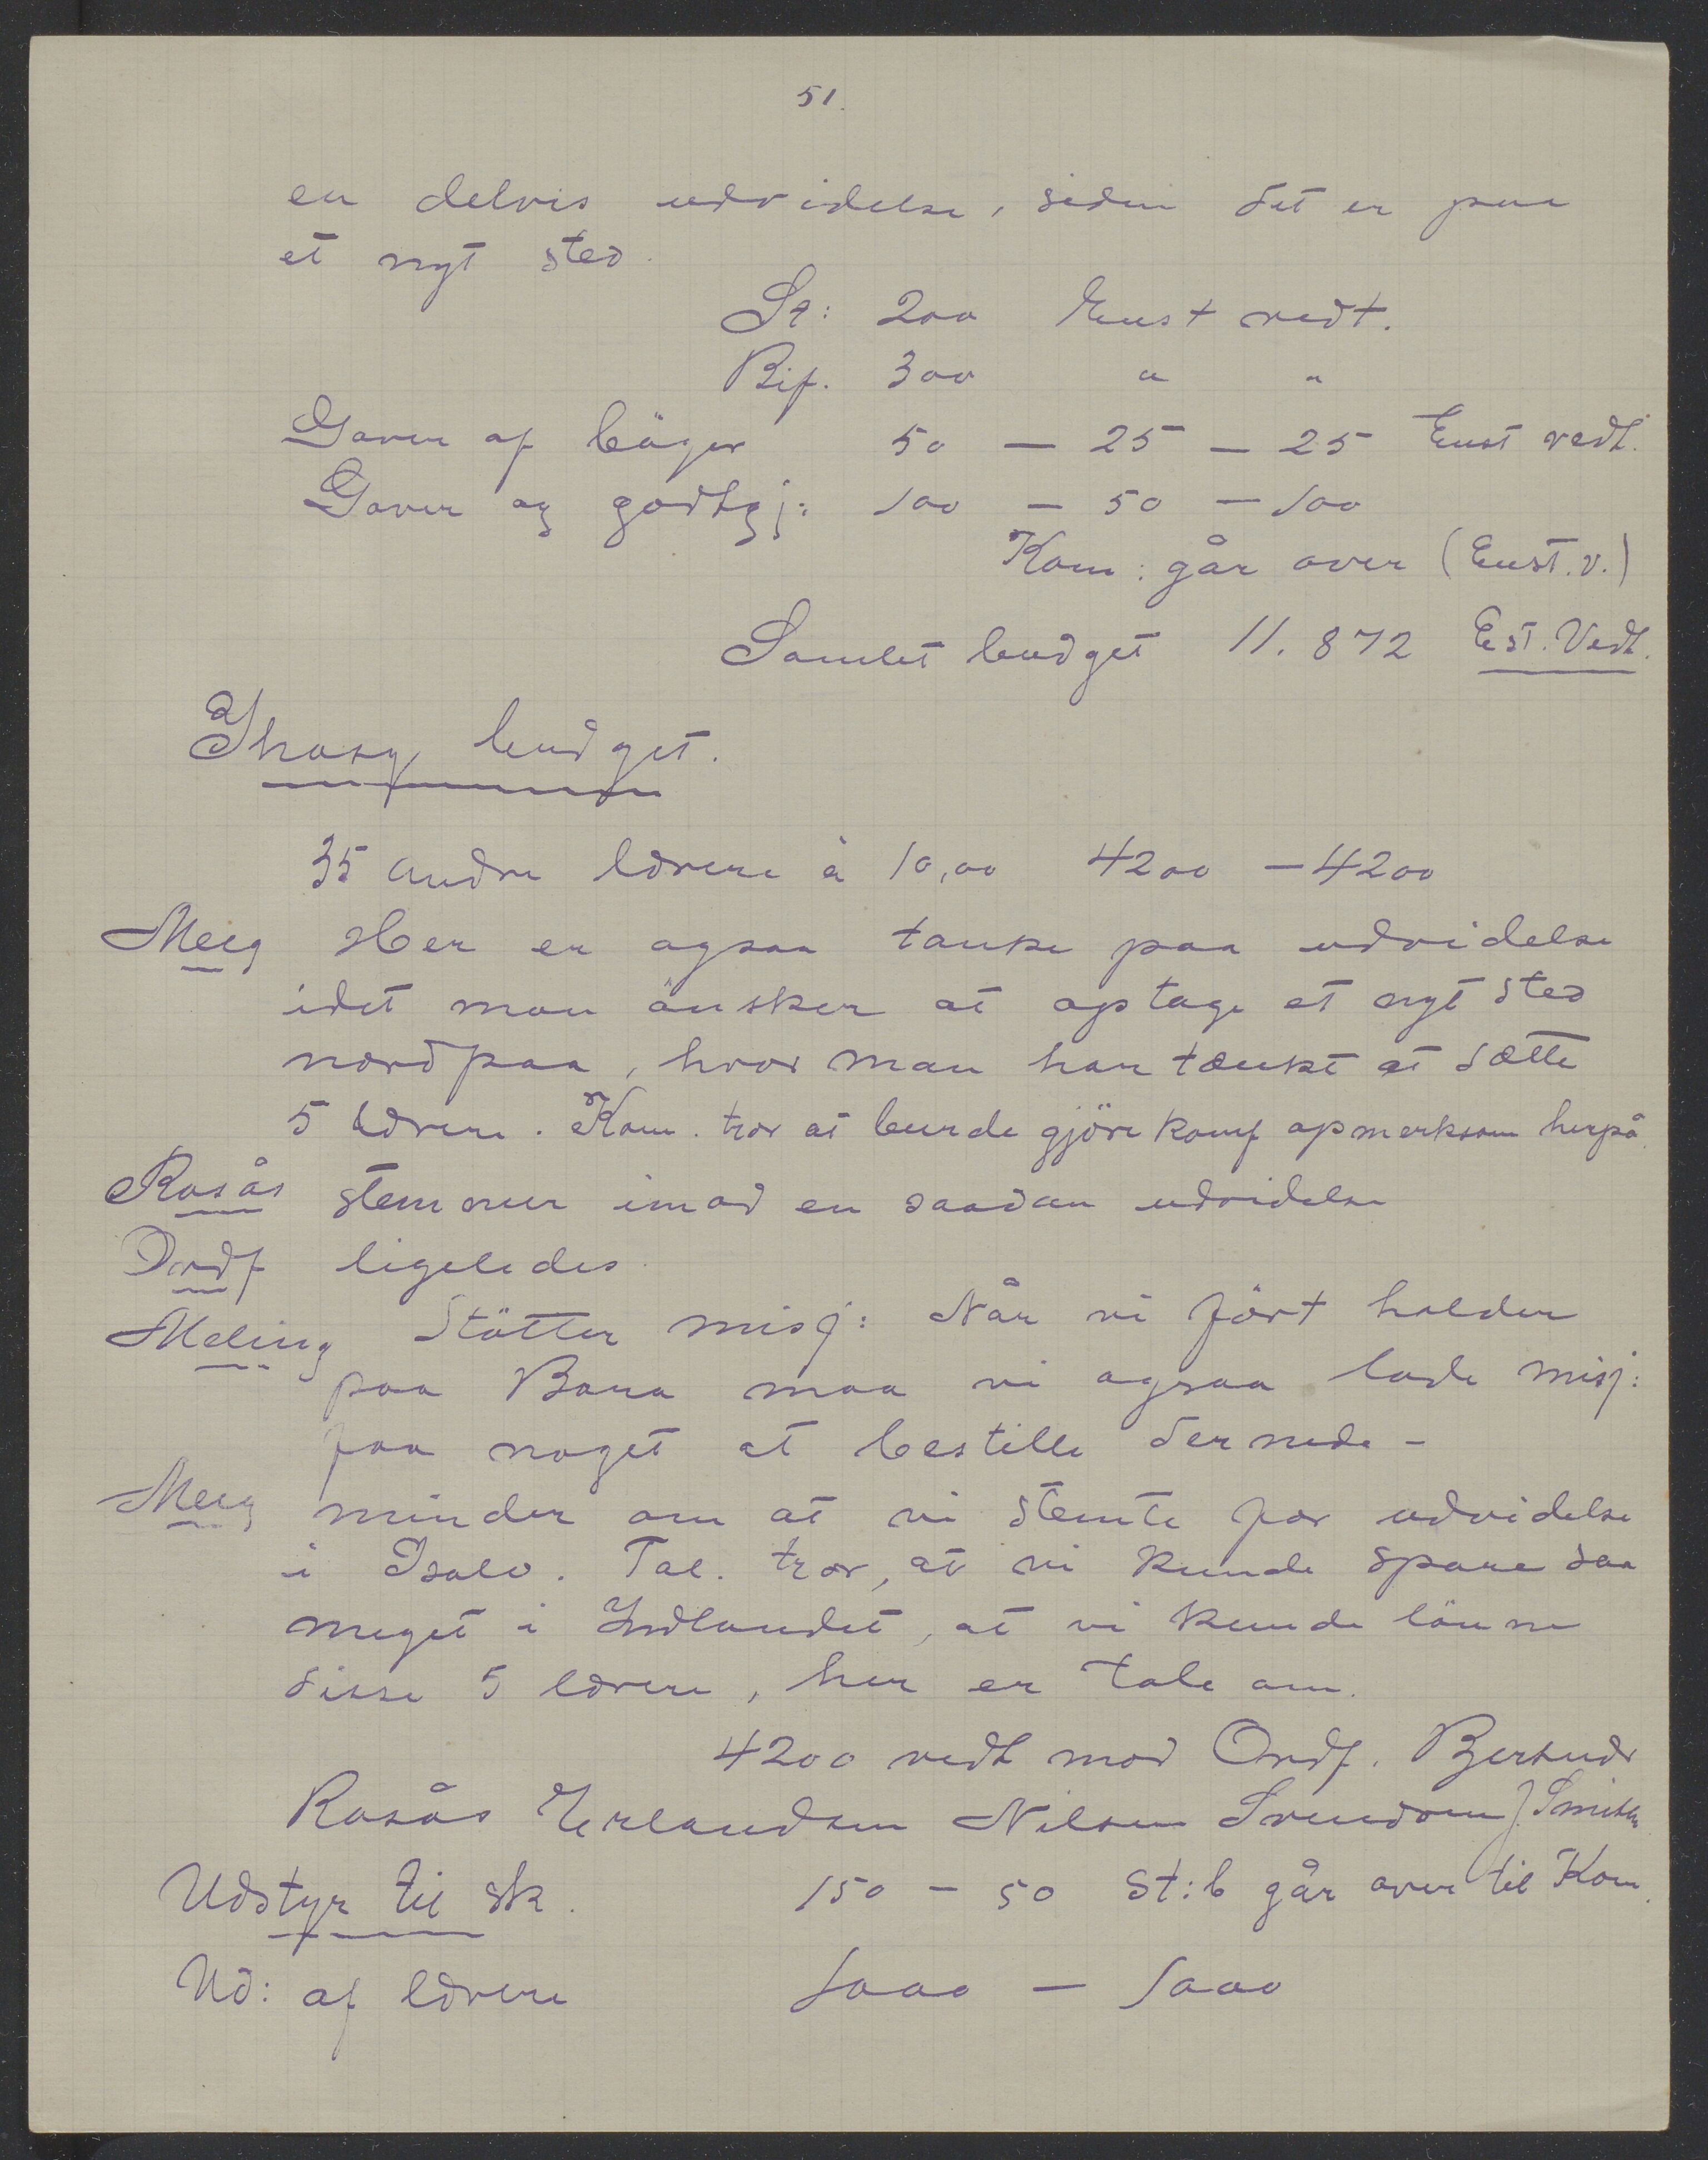 51.
en delvis udvidelse, siden det er paa
et nyt sted.
St: 200 Enst vedt.
Bif. 300 " "
Gaver af böger 50 — 25 — 25 Enst vedt.
Gaver og godtgj: 100 — 50 — 100
Kom: går over (Enst. v.)
Samlet budget 11.872 Est. Vedt.
Ihosy budget.
35 andre lærere à 10,00 4200 — 4200
Meeg Her er ogsaa tanke paa udvidelse
idet man önsker at optage et nyt sted
nordpaa, hvor man har tænkt at sætte
5 lærere. Kom. tror at burde gjöre konf opmerksom herpå.
Rosås stemmer imod en saadan udvidelse
Ordf ligeledes.
Meling Stötter misj: Når vi först holder
paa Bara maa vi ogsaa lade misj:
faa noget at bestille dernede –
Meeg minder om at vi stemte for udvidelse
i Isalo. Tal. tror, at vi kunde spare saa
meget i Indlandet, at vi kunde lönne
disse 5 lærere, her er tale om.
4200 vedt mod Ordf. Bjerknes
Rosås Erlandsen Nilsen Svendsen J. Smith
Udstyr til sk. 150 – 50 St:b går over til Kom.
Ud: af lærere 1000 — 1000